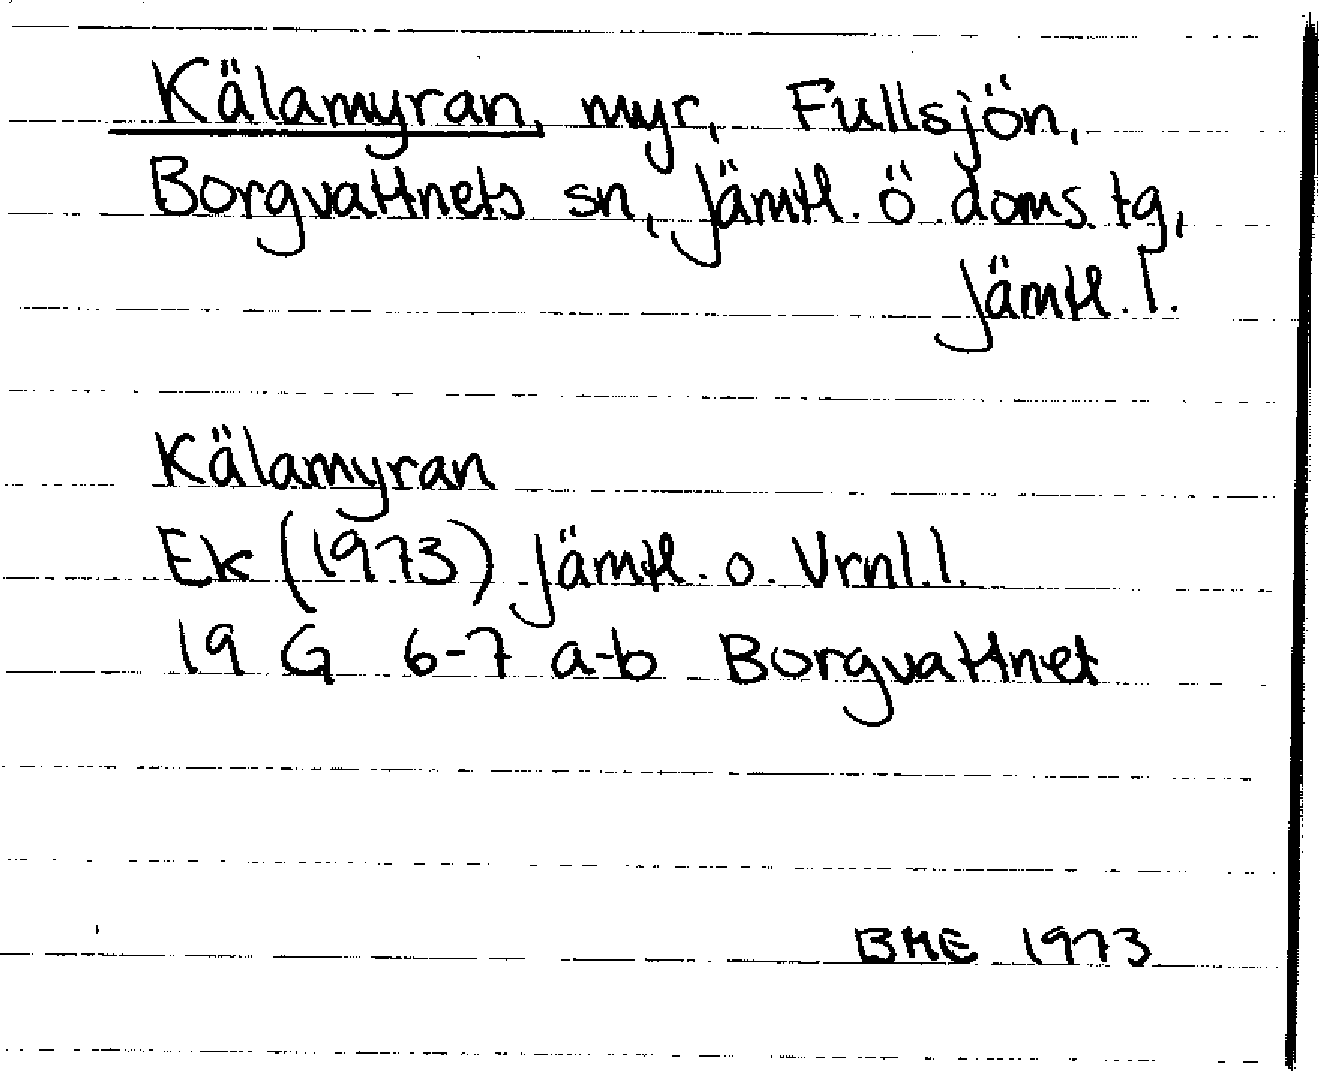 Kälamyran, myr, Fullsjön,
Borgvattnets sn, Jämtl. ö doms. tg,
Jämtl. l.
Kälamyran
Ek (1973) Jämtl. o. Vrnl. l.
19 G 6-7 a-b Borgvattnet
BME 1973